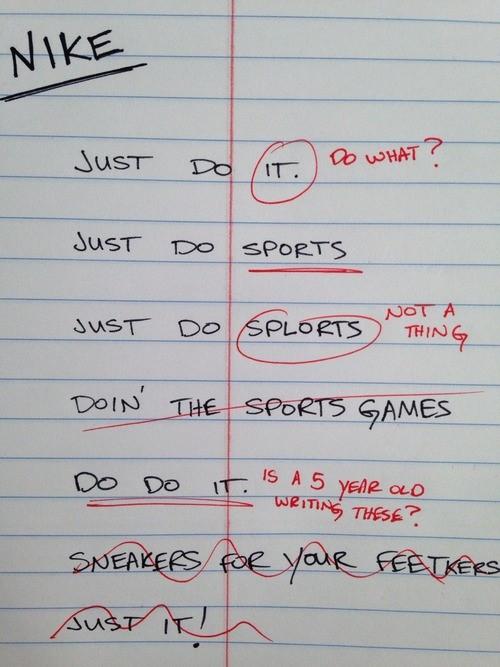 NIKE
JUST DO IT. DO WHAT?
JUST DO SPORTS
JUST DO SPLORTS NOT A
THING
DOIN' THE SPORTS GAMES
DO DO IT. IS A 5 YEAR OLD
WRITING THESE?
SNEAKERS FOR YOUR FEETKERS
JUST IT!